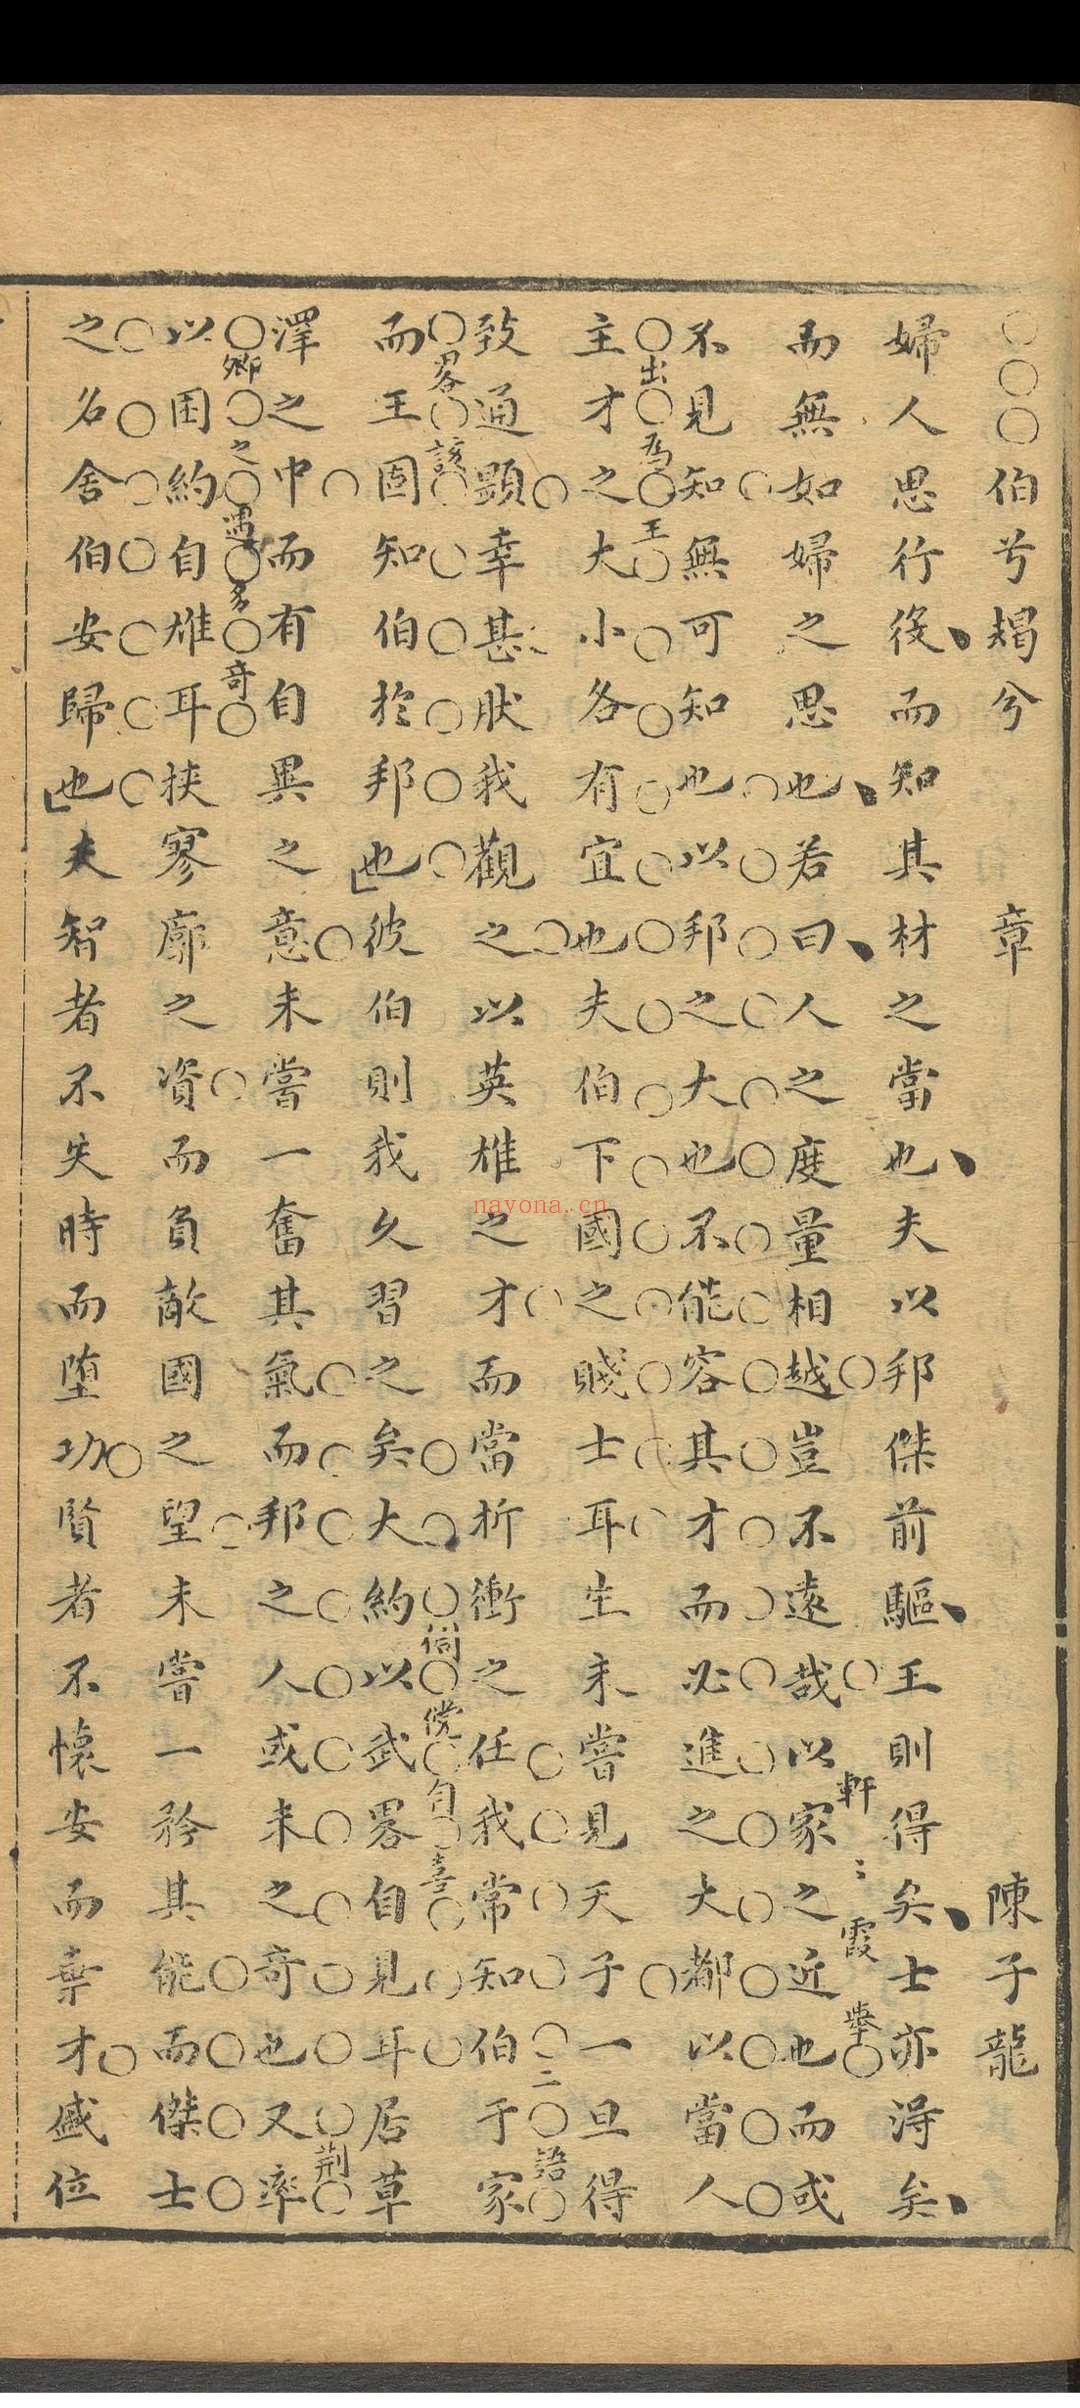 伯兮朅兮章 陳子龍
婦人思行役而知其材之當也夫以邦傑前驅王則得矣士亦淂矣
而無如婦之思也若曰人之度量相越豈不遠哉以家之近也而或
軒霞舉
不見知無可知也以邦之大也不能容其才而必進之大都以當人
主才之大小各有宜也夫伯下國之賤士耳生未嘗見天子一旦得
出為王
致通顯幸甚肰我觀之以英雄之才而當折衝之任我常知伯于家
二語
而王固知伯於邦也彼伯則我久習之矣大約以武畧自見耳居草
畧該
句喜
澤之中而有自異之意未嘗一奮其氣而邦之人或未之奇也又率
荆
以困約自雄耳挾寥廓之資而負敵國之望未嘗一矜其能而傑士
卿之遇多奇
之名舍伯安歸也夫智者不失時而堕功賢者不懷安而棄才盛位
nayona.cn